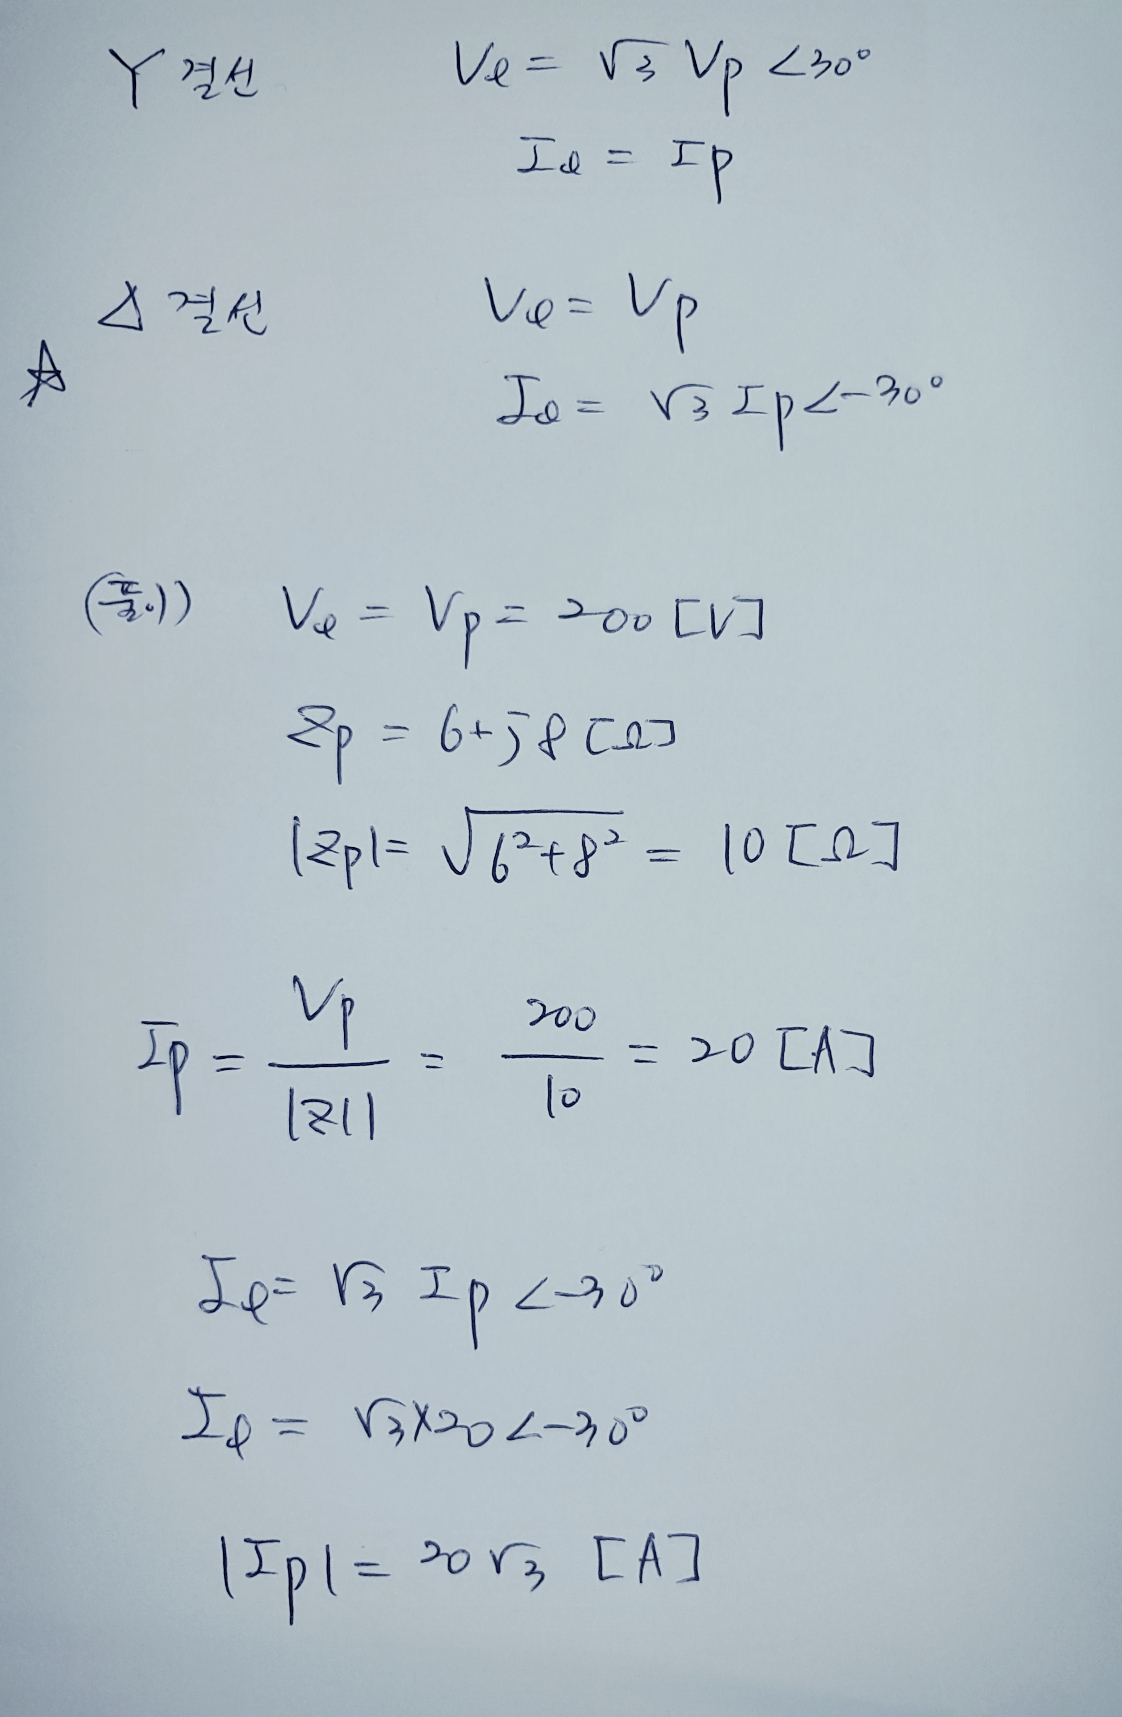 Y 결선 Vℓ = √3 Vp ∠30°
Iℓ = Ip
Δ 결선 Vℓ = Vp
☆ Iℓ = √3 Ip∠-30°
(풀이) Vℓ = Vp = 200 [V]
Zp = 6+j8 [Ω]
|Zp| = √(6²+8²) = 10 [Ω]
Ip = Vp/|Z| = 200/10 = 20 [A]
Iℓ = √3 Ip ∠-30°
Iℓ = √3×20 ∠-30°
|Ip| = 20√3 [A]